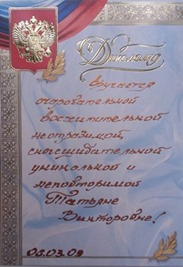 Диплом
Вручается
очаровательной
восхитительной
неотразимой
сногсшибательной
уникальной и
неповторимой
Татьяне
Викторовне!
05.03.09